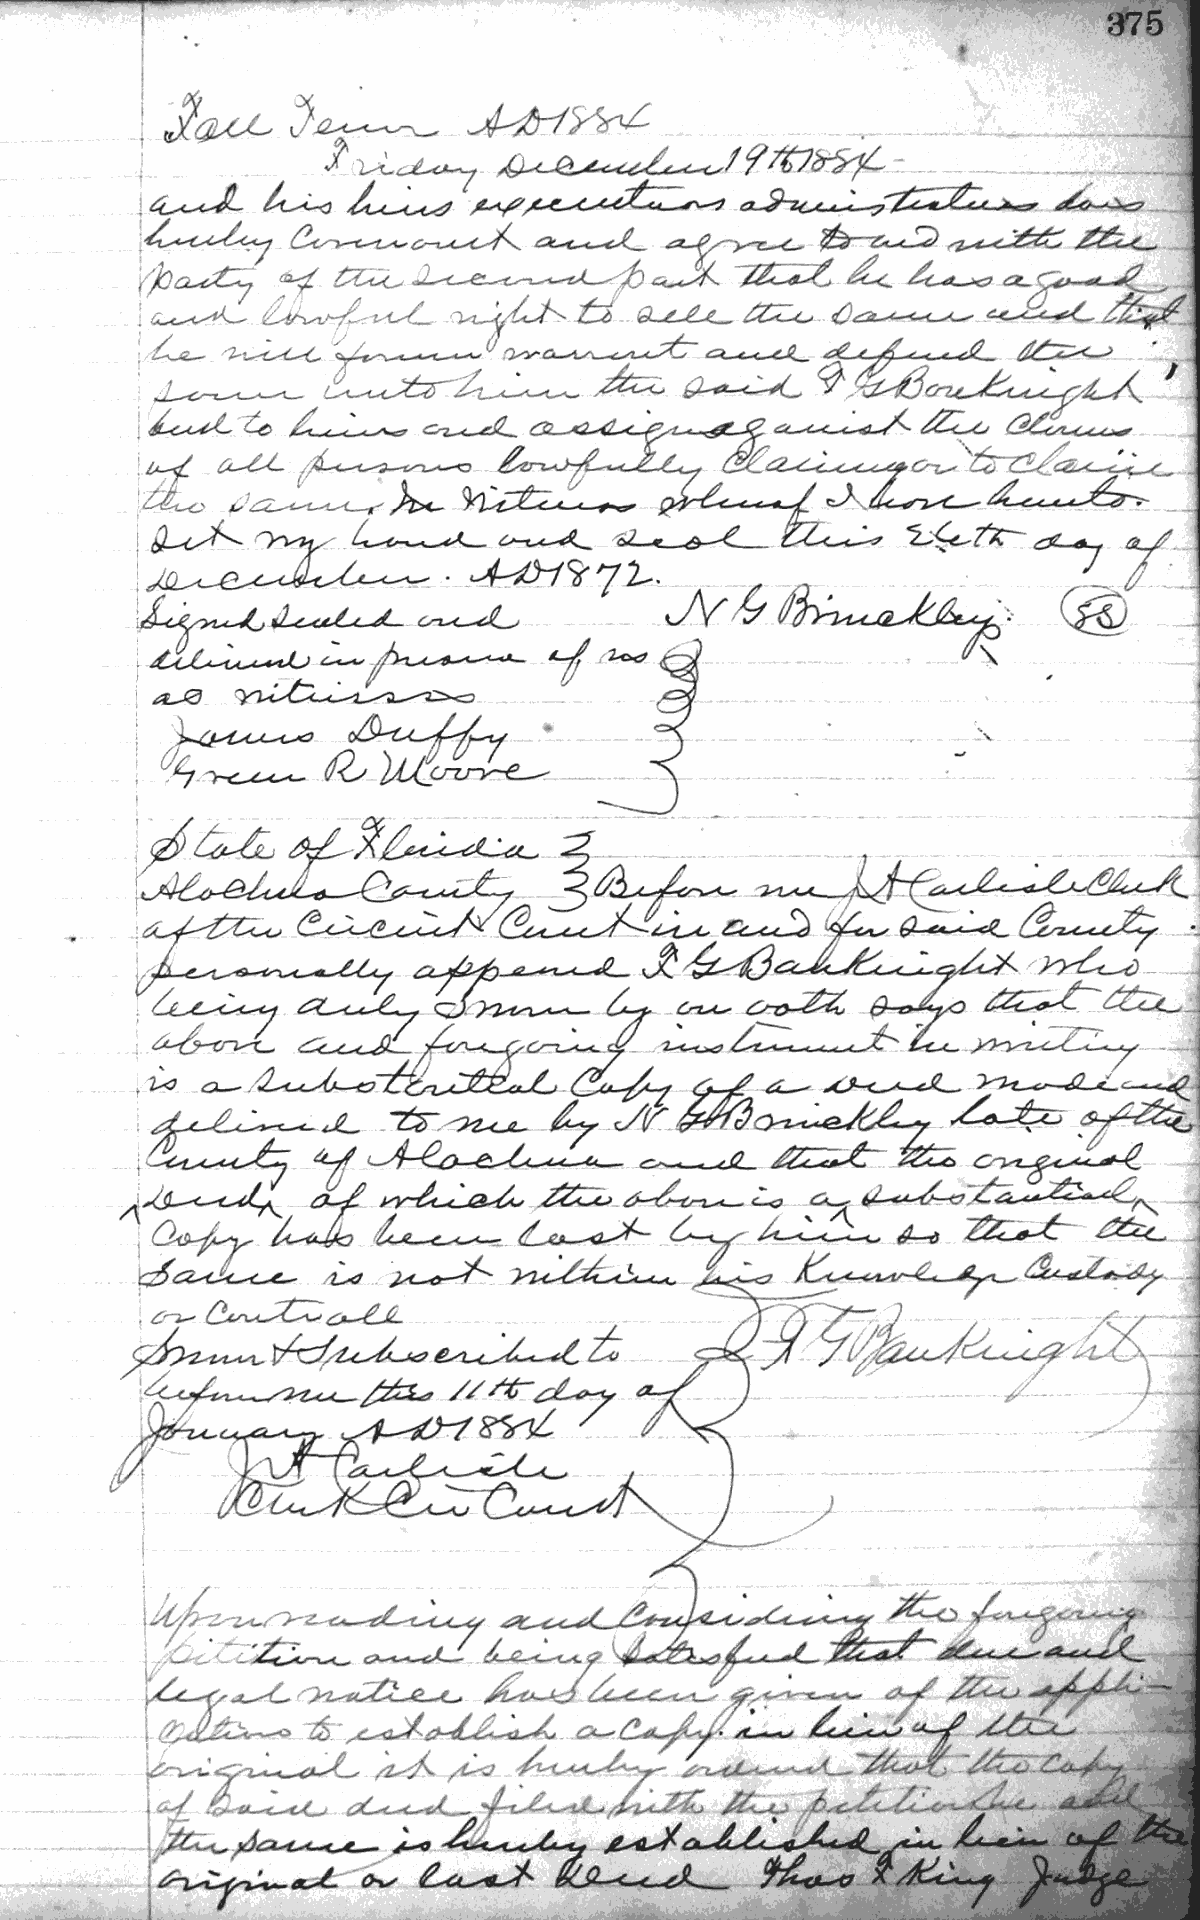 375
Fall Term AD 1884
Friday December 19th 1884
and his heirs executors administrators does
hereby Covenant and agree to and with the
party of the second part that he has a good
and lawful right to sell the same and that
he will forever warrent and defend the
same unto him the said F G Bauknight
and to heirs and assigns against the claims
of all persons lawfully Claiming or to claim
the same. In Witness whereof I have hereto
set my hand and seal this day of
December. AD 1872.
Signed sealed and N G Brinckley.
delivered in presence of us
as witnesses
James Duffy
Green R Moore
State of Florida
Alachua County Before me J A Carlisle Clerk
of the Circuit Court in and for said County
personally appeared F G Bauknight who
being duly sworn by on oath says that the
above and foregoing instrument in writing
is a substantial Copy of a deed made and
delivered to me by N G Brinckley late of the
County of Alachua and that the original
Deed, of which the above is a substantial
Copy has been lost by him so that the
same is not within his Knowledge Custody
or Controll
Sworn & Subscribed to F G Bauknight
before me this 11th day of
January AD 1884
J A Carlisle
Clerk Cir Court
Upon reading and Considering the foregoing
petition and being satisfied that due and
legal notice has been given of the appli-
cations to establish a copy in lieu of the
original it is hereby ordered that the copy
of said deed filed with the petition be and
the same is hereby established in lieu of the
original or lost deed Thos F King Judge